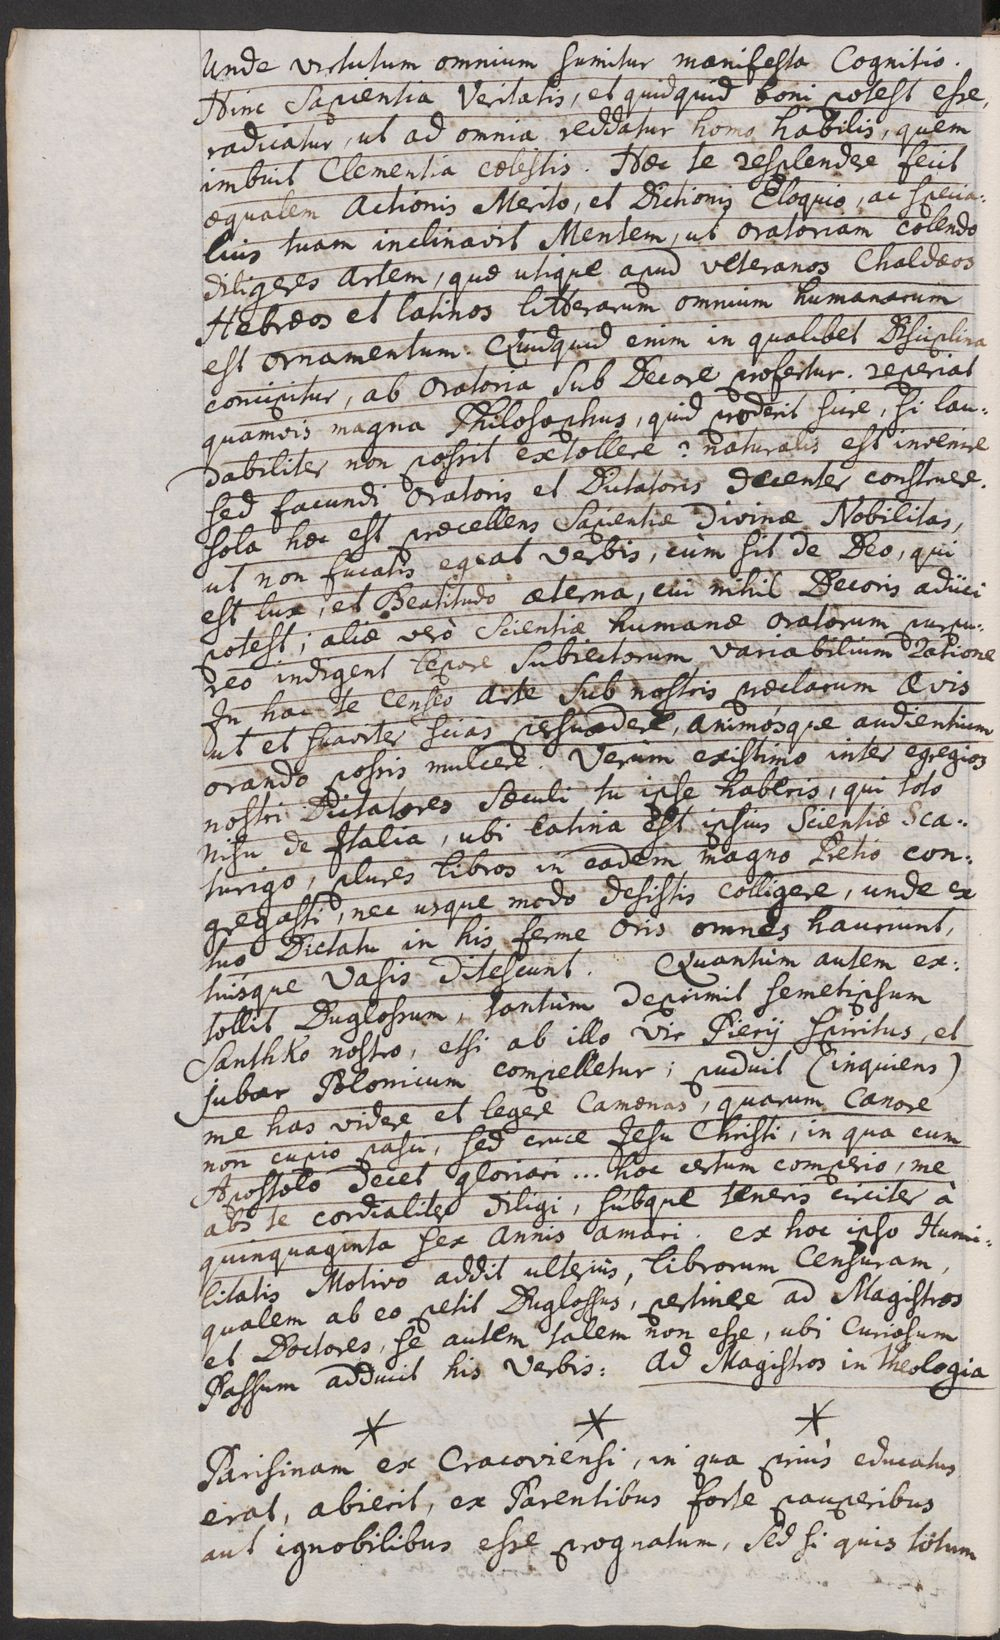 Unde virtutum omnium sumitur manifesta Cognitio.
Hinc Sapientia Veritatis, et quidquid boni potest esse,
radicatur, ut ad omnia reddatur homo habilis, quem
imbuit Clementia cælestis. Hæc te resplendere fecit
æqualem Actionis Merito, et Dictionis Eloquio, ac specia:
lius tuam inclinavit Mentem, ut oratoriam colendo
diligeres Artem, quæ utique apud veteranos Chaldæos
Hebræos et latinos litterarum omnium humanarum
est ornamentum. Quidquid enim in qualibet Disciplina
concipitur, ab oratoria sub Decore profertur. reperiat
quamvis magna Philosophus, quid proderit scire, si lau:
dabiliter non possit extollere? naturalis est invenire
sed facundi oratoris et Dictatoris decenter construere.
sola hæc est præcellens Sapientiæ Divinæ Nobilitas,
ut non fucatis egeat verbis, cùm sit de Deo, qui
est lux, et Beatitudo æterna, cui nihil Decoris adijci
potest; aliæ verò Scientiæ humanæ oratorum purpu:
reo indigent lepore subiectorum variabilium Ratione
In hac te censeo Arte sub nostris præclarum ævis
ut et suaviter scias persuadere, animósque audientium
orando possis mulcere. Verùm existimo inter egregios
nostri Dictatores sæculi tu ipse haberis, qui toto
nisu de Italia, ubi latina est ipsius Scientiæ Sca:
turigo, plures libros in eadem magno Pretio con:
gregasti, nec usque modo desistis colligere, unde ex
tuo Dictatu in his ferme oris omnes hauriunt,
tuisque Vasis ditescunt. Quantùm autem ex:
tollit Duglossum, tantùm deprimit semetipsum
Santhko nostro, etsi ab illo vir Pierij spiritus, et
jubar Polonicum compelletur; puduit (inquiens)
me has videre et legere Camænas, quarum Canore
non cupio pasci, sed cruce Jesu Christi, in qua cum
Apostolo decet gloriari ... hoc certum comperio, me
abs te cordialiter diligi, súbque teneris circiter à
quinquaginta sex annis amari. ex hoc ipso Humi:
litatis Motivo addit ulteriùs, librorum Censuram,
qualem ab eo petit Duglossus, pertinere ad Magistros
et Doctores, se autem talem non esse, ubi Curiosum
Passum adducit his verbis: Ad Magistros in theologia
* * *
Parisinam ex Cracoviensi, in qua priùs educatus
erat, abierit, ex Parentibus forte pauperibus
aut ignobilibus esse prognatum, sed si quis totum